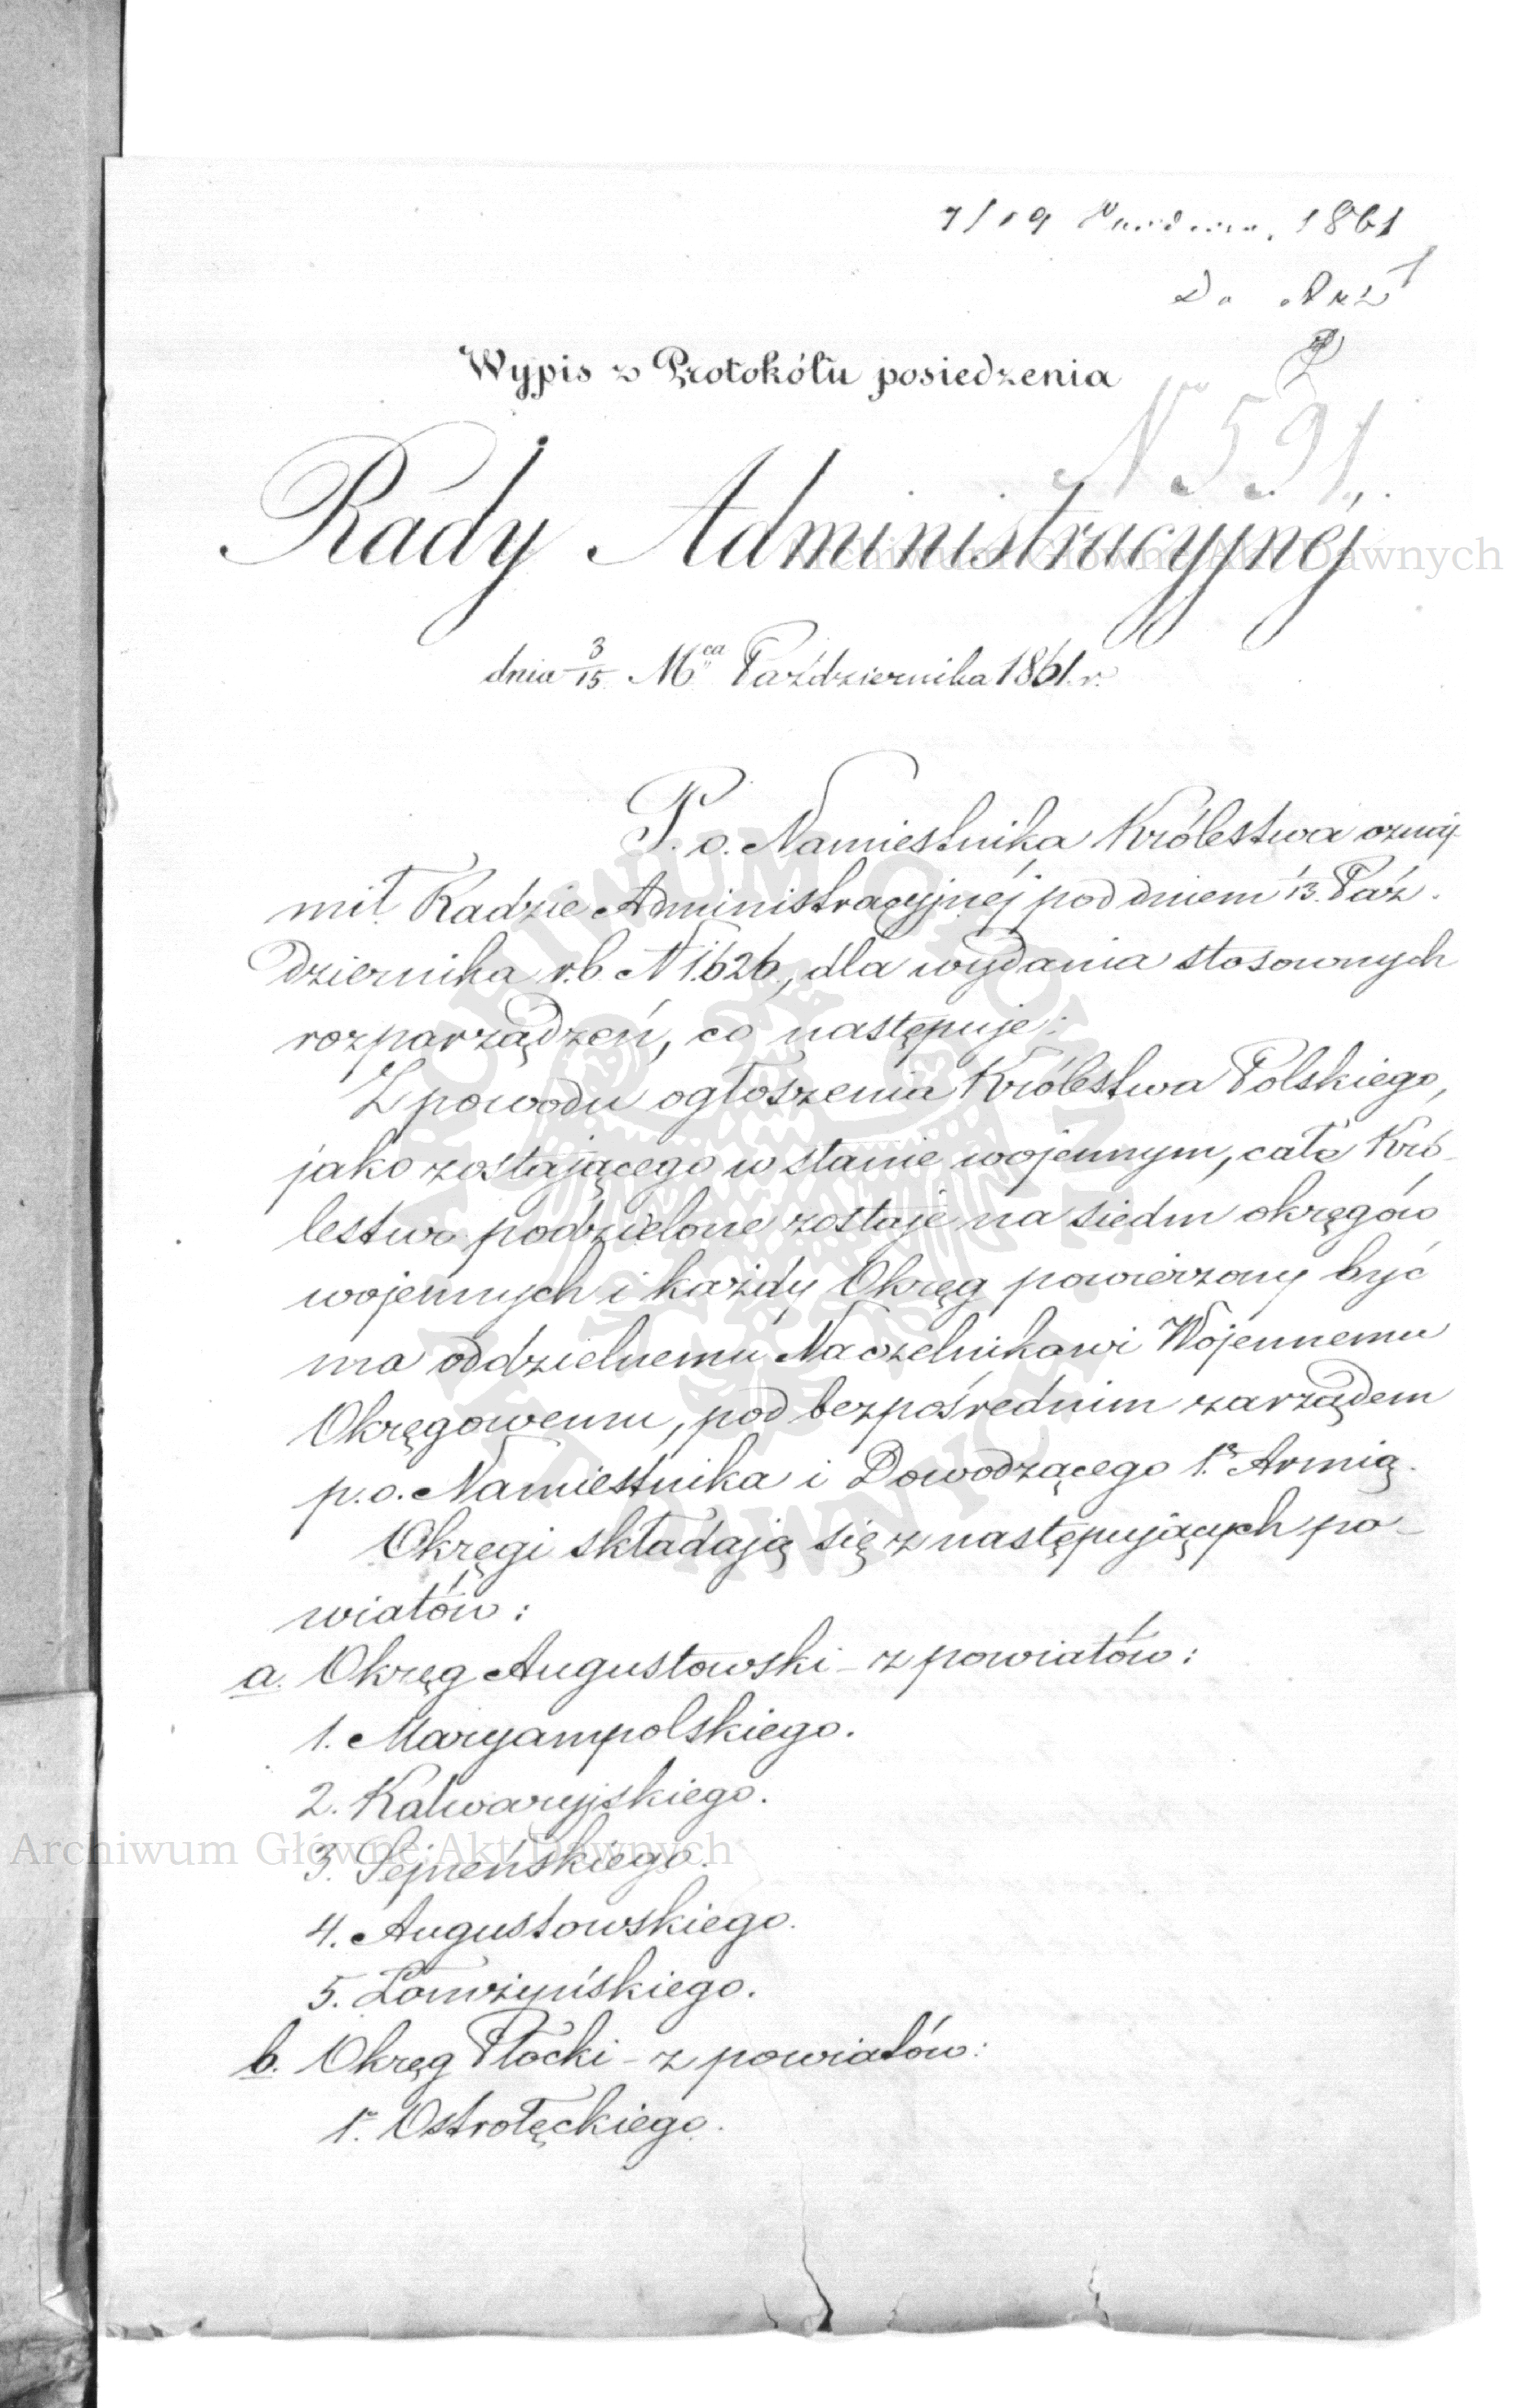 7/19 1861
Do
Wypis z Protokółu posiedzenia
N 591.
Rady Administracyjnéj
Archiwum Główne Akt Dawnych
dnia 3/15 Mca Października 1861. r.
P. o. Namiestnika Królestwa oznaj-
mił Radzie Administracyjnéj pod dniem 13. Paź-
dziernika r.b. N 1.626, dla wydania stosownych
rozparządzeń, co następuje:
Z powodu ogłoszenia Królestwa Polskiego,
jako zostającego w stanie wojennym, całe Kró-
lestwo podzielone zostaje na siedm okręgów
wojennych i każdy Okręg powierzony być
ma oddzielnemu Naczelnikowi Wojennemu
Okręgowemu, pod bezpośrednim zarządem
p.o. Namiestnika i Dowodzącego 1ą Armią.
Okręgi składają się z następujących po-
wiatów:
a. Okręg Augustowski - z powiatów:
1. Maryampolskiego.
2. Kalwaryjskiego.
Archiwum Główne Akt Dawnych
3. Sejneńskiego.
4. Augustowskiego.
5. Łomżyńskiego.
b. Okręg Płocki - z powiatów:
1. Ostrołęckiego.
ARCHIWUM GŁÓWNE AKT DAWNYCH